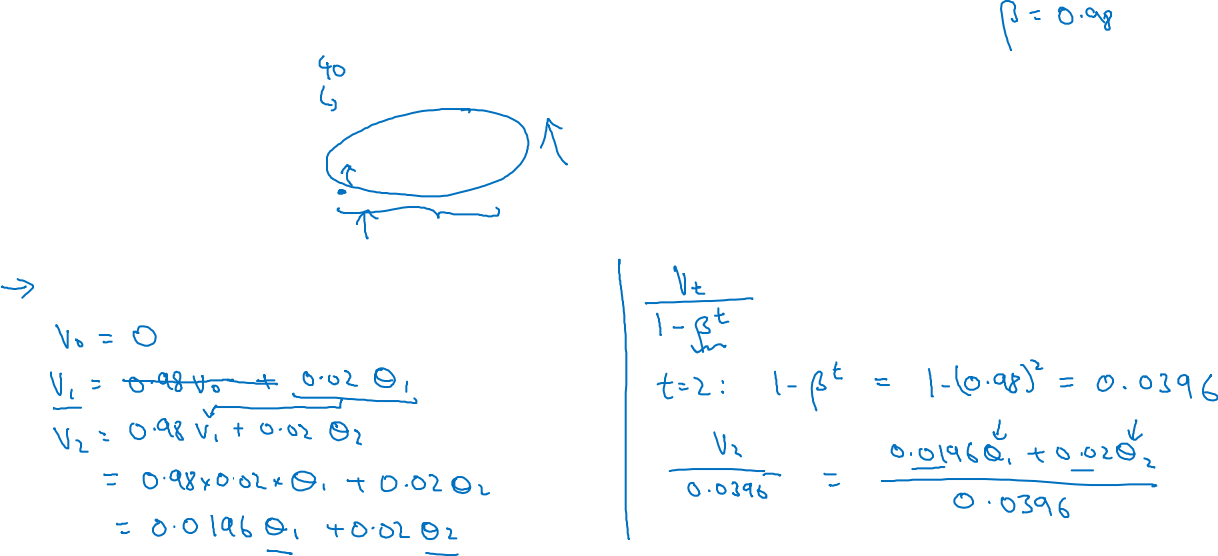 β = 0.98
40
→
V₀ = 0
V₁ = 0.98 V₀ + 0.02 θ₁
V₂ = 0.98 V₁ + 0.02 θ₂
= 0.98 x 0.02 x θ₁ + 0.02 θ₂
= 0.0196 θ₁ + 0.02 θ₂
Vₜ
1 - βᵗ
t=2: 1 - βᵗ = 1-(0.98)² = 0.0396
V₂ / 0.0396 = 0.0196 θ₁ + 0.02 θ₂ / 0.0396